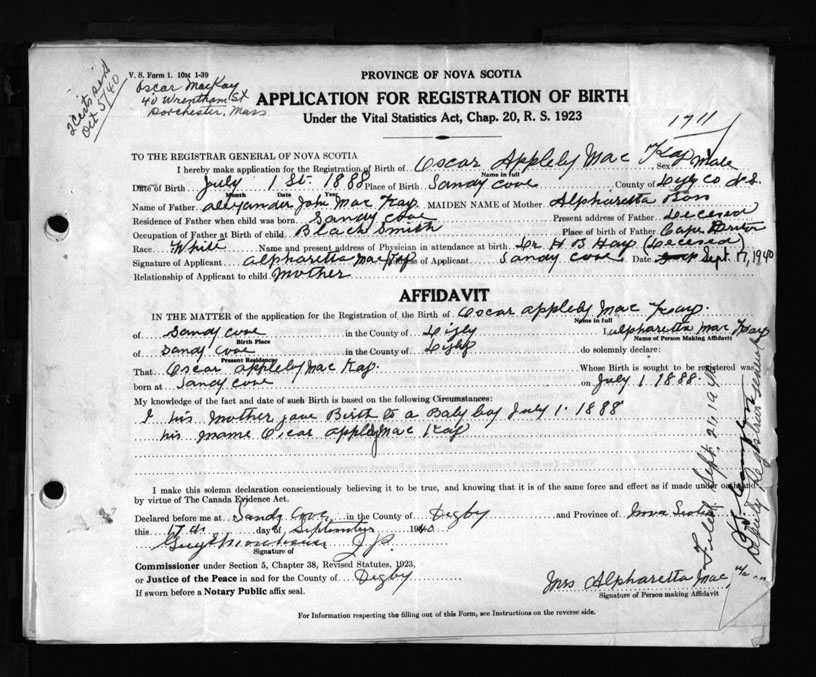 V. S. Form 1. 10M 1-39
Oscar MacKay
40 Wrentham St
Dorchester, Mass
2 Certs sent
Oct 5/40
PROVINCE OF NOVA SCOTIA
APPLICATION FOR REGISTRATION OF BIRTH
Under the Vital Statistics Act, Chap. 20, R. S. 1923
1711
TO THE REGISTRAR GENERAL OF NOVA SCOTIA
I hereby make application for the Registration of Birth of Oscar Appleby Mac Kay Sex Male
Name in full
Date of Birth July 1 St. 1888 Place of Birth Sandy Cove County of Digby Co N.S.
Month Date Year
Name of Father Alexander John Mac Kay. MAIDEN NAME of Mother Alpharetta
Residence of Father when child was born Sandy Cove Present address of Father Decesed
Occupation of Father at Birth of child Black Smith Place of birth of Father Cape Breton
Race White Name and present address of Physician in attendance at birth Dr H B Hay (Decesed)
Signature of Applicant Alpharetta Mac Kay Address of Applicant Sandy Cove Date Sept 17, 1940
Relationship of Applicant to child Mother
AFFIDAVIT
IN THE MATTER of the application for the Registration of the Birth of Oscar Appleby Mac Kay.
Name in full
of Sandy Cove in the County of Digby I, Alpharetta Mac Kay
Birth Place Name of Person Making Affidavit
of Sandy Cove in the County of Digby do solemnly declare:
Present Residence
That Oscar Appleby Mac Kay. Whose Birth is sought to be registered was
born at Sandy Cove on July 1. 1888.
My knowledge of the fact and date of such Birth is based on the following Circumstances:
I his Mother gave Birth to a Baby boy July 1. 1888
his Name Oscar Appleby Mac Kay
I make this solemn declaration conscientiously believing it to be true, and knowing that it is of the same force and effect as if made under oath and
by virtue of The Canada Evidence Act.
Declared before me at Sandy Cove, in the County of Digby and Province of Nova Scotia
this 17th day of September 1940
J.P.
Signature of
Commissioner under Section 5, Chapter 38, Revised Statutes, 1923,
or Justice of the Peace in and for the County of Digby
If sworn before a Notary Public affix seal.
Mrs Alpharetta Mac
Signature of Person making Affidavit
For Information respecting the filling out of this Form, see Instructions on the reverse side.
Filed Sept. 20, 194
Deputy Registrar General